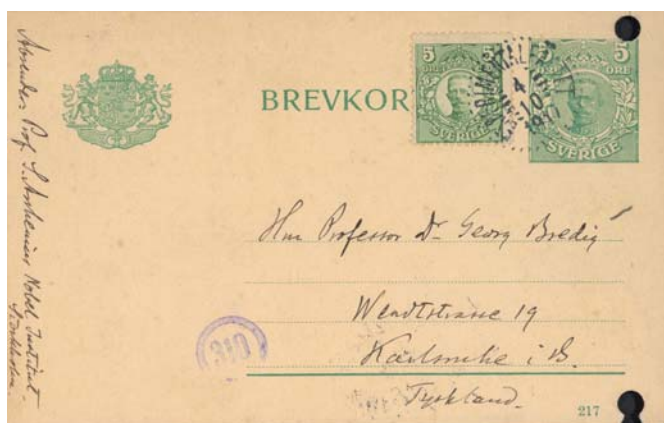 Absender: Prof. S. Arrhenius Nobel Institut
Stockholm.
BREVKOR
5 5
ÖRE
SVERIGE
5
ÖRE
SVERIGE
4
10
Herr Professor Dr. Georg Bredig
Wendtstrasse 19
Karlsruhe i. B.
Tyskland.
310
217